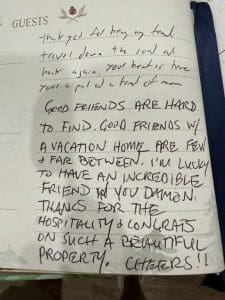 GUESTS
thank you for
travel down the road
back again. Your
GOOD FRIENDS ARE HARD
TO FIND. GOOD FRIENDS W/
A VACATION HOME ARE FEW
& FAR BETWEEN. I'M LUCKY
TO HAVE AN INCREDIBLE
FRIEND IN YOU DAMON.
THANKS FOR THE
HOSPITALITY & CONGRATS
ON SUCH A BEAUTIFUL
PROPERTY. CHEERS!!